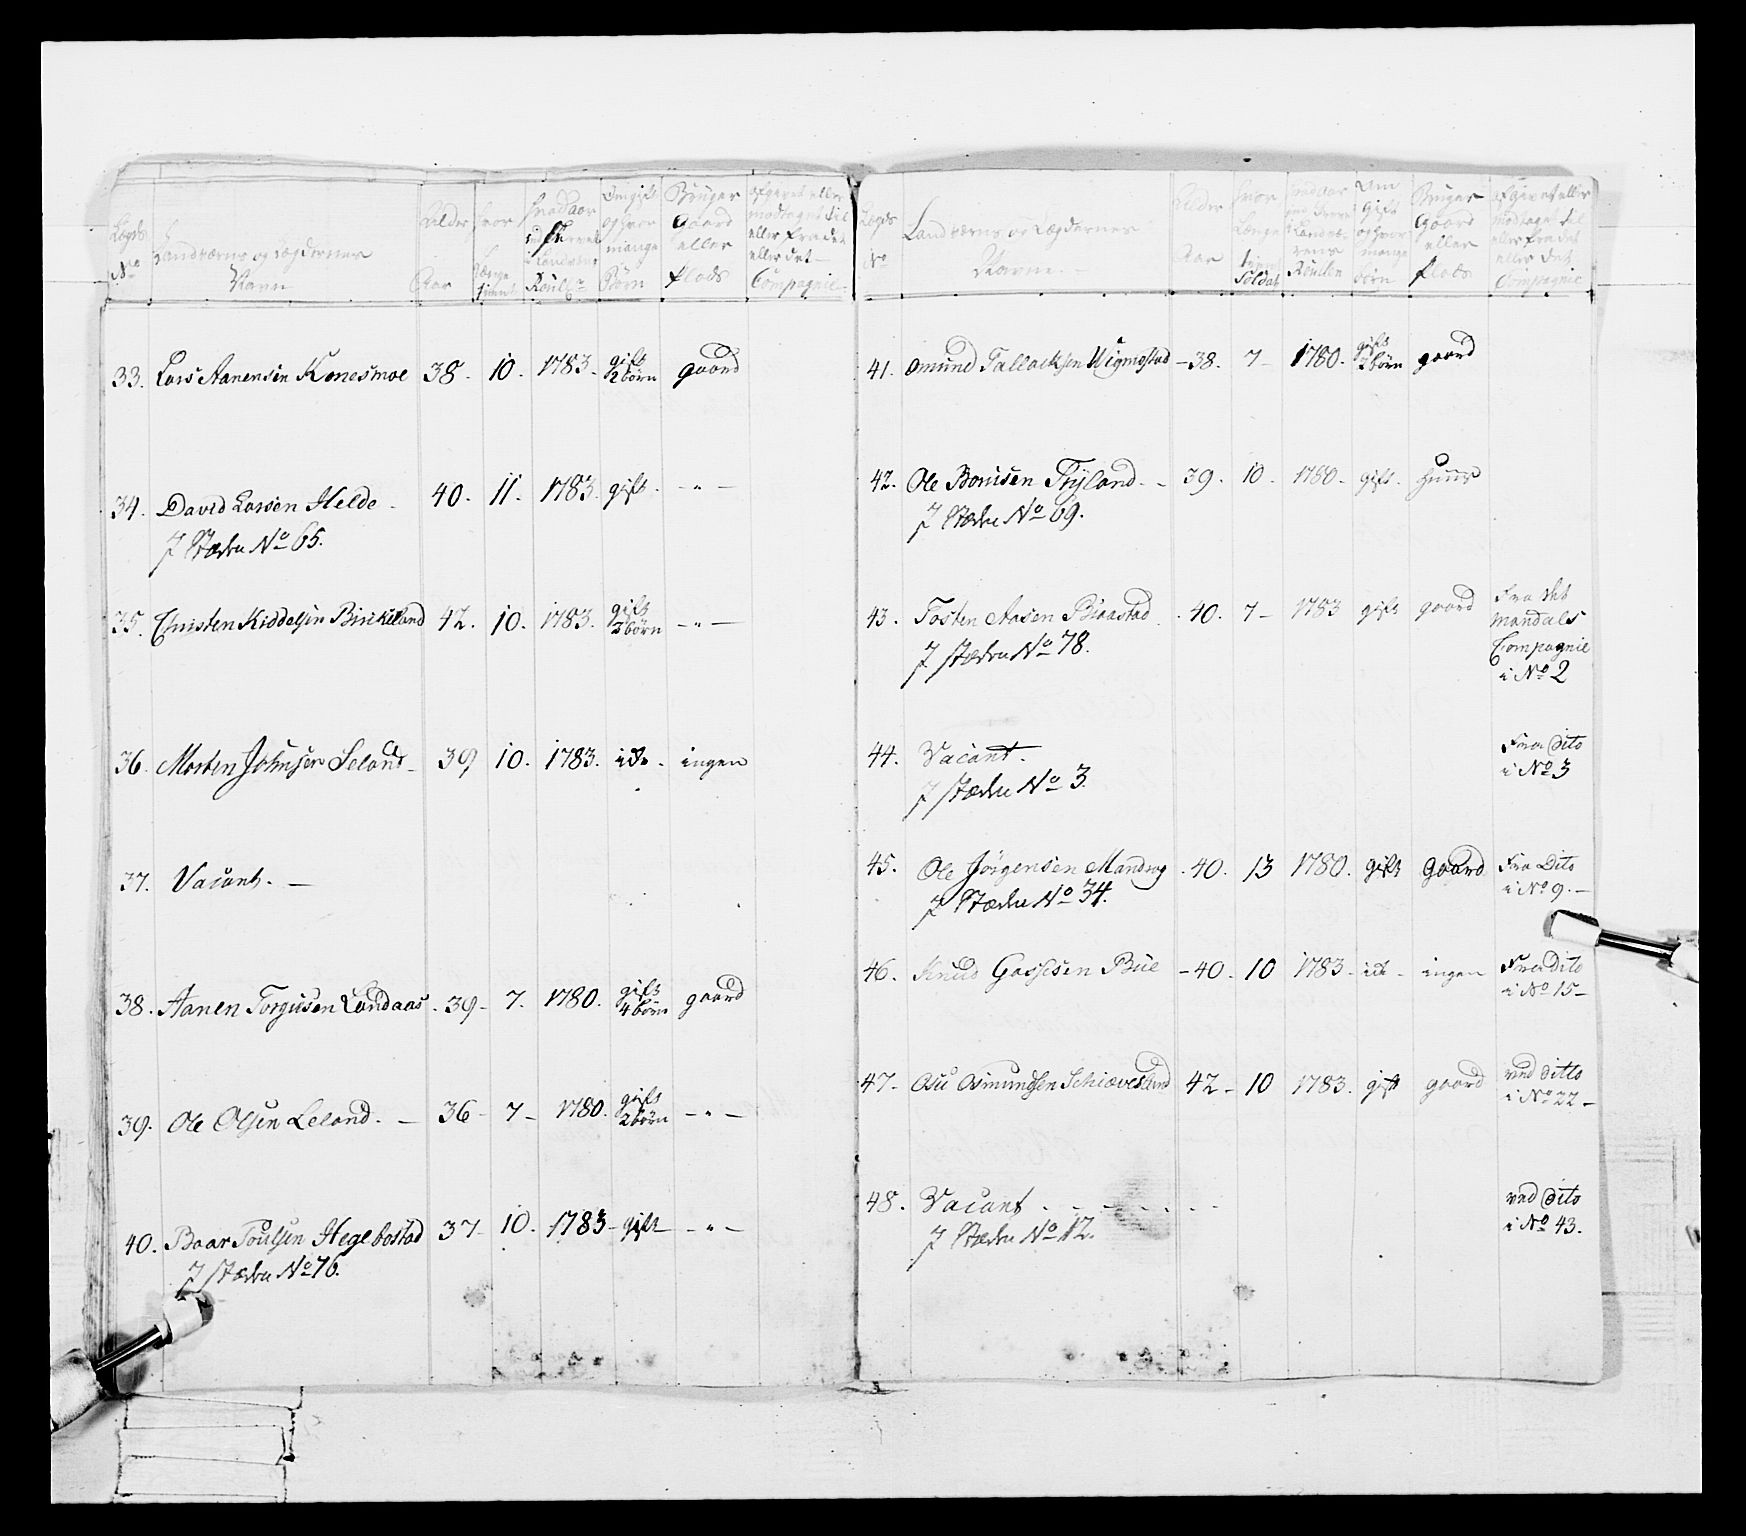 Lægds No
Landværns og Lægdernes Navn
Alder Aar
hvor længe tient
Om gift og hvor mange Børn
Bruger Gaard eller Plads
afgivet eller modtaget til eller fra det eller det Compagnie
33. Lars Aanensen Konesmoe 38. 10. 1783. gift 2 børn gaard
34. David Larsen Helde 40. 11. 1783. gift. - " -
J Stæden No 65.
35. Christen Kiddelsen Birkeland 42. 10. 1783. gift 3 børn - " -
36. Morten Johnsen Leland 39 10. 1783. ide. ingen
37. Vacant. -
38. Aanen Torgiusen Landaas. 39- 7. 1780. gift 4 børn gaard
39. Ole Olsen Leland. - 36- 7- 1780. gift 2 børn - " -
40. Baar Poulsen Hegebostad 37- 10. 1783- gift - " -
J Stæden No 76.
Lægds No
Landværns og Lægdernes Navne. -
Alder Aar
hvor Længe tient Soldat
Om Gift og hvor mange børn
Bruger Gaard eller Plads
afgivet eller modtaget til eller fra det eller det Compagnie
41. Omund Tallaksen Wigmostad - 38. 7- 1780. gift 2 børn gaard
42. Ole Bonisen Fyland. - 39. 10. 1780. gift. huus
J Stæden No 69.
43. Tosten Aasen Biaastad . 40. 7- 1783 gift gaard Fra det
Mandals
Compagnie
i No 2
J Stæden No 78.
44. Vacant. Fra Dito
i No 3
J Stæden No 3.
45. Ole Jörgensen Mandrog . 40. 13 1780. gift Gaard Fra Dito
i No 9. -
J Stæden No 34.
46. Knud Gassesen Bue - 40. 10 1783. ide - ingen Fra dito
i No 15-
47. Osu Osmundsen Schiævesland 42- 10 1783. gift gaard ved ditto
i No 22-
48. Vacant . - - - - . - - ved Dito
i No 43.
J Stæden No 12.